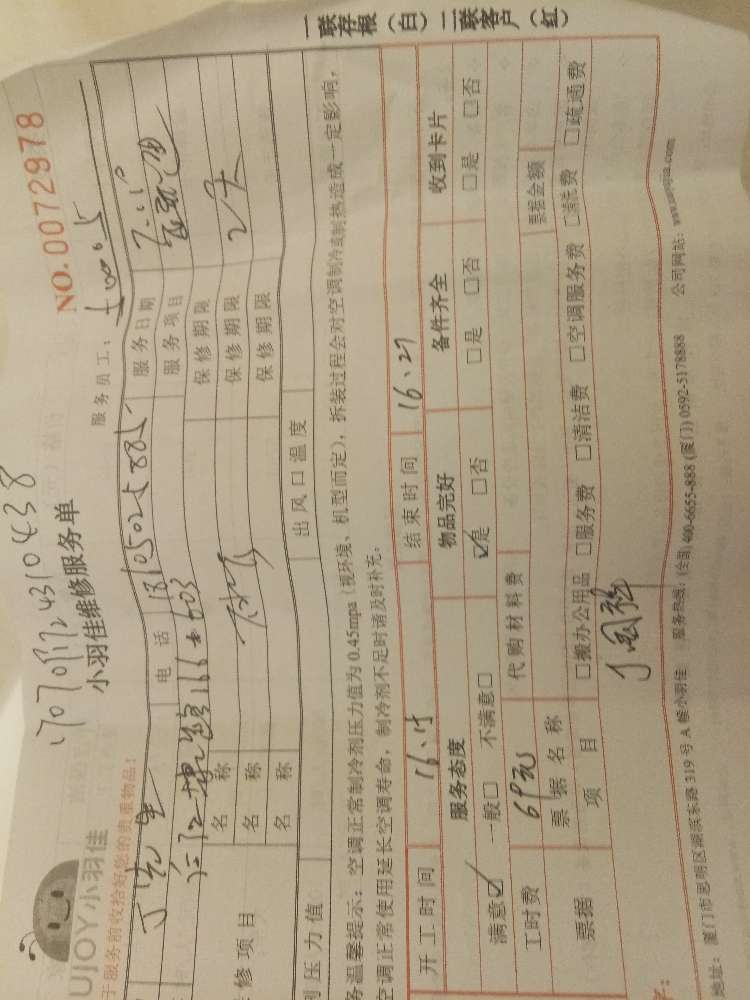 一联存根（白）二联客户（红）
NO.0072978
小羽佳维修服务单
UJOY小羽佳
于服务前收拾好您的贵重物品！
服务员工：
丁先生 电话 18105025885 服务日期
服务项目
名称 保修期限
修项目 名称 保修期限
名称 保修期限
压力值 出风口温度
务温馨提示：空调正常制冷剂压力值为0.45mpa（视环境、机型而定），拆装过程会对空调制冷或制热造成一定影响，
空调正常使用延长空调寿命，制冷剂不足时请及时补充。
开工时间 16:15 结束时间 16:27
服务态度 物品完好 备件齐全 收到卡片
满意☑ 一般□ 不满意□ ☑是 □否 □是 □否 □是 □否
工时费 69元 代购材料费
票据 票据名称 票据金额
项目 □搬办公用品 □服务费 □清洁费 □空调服务费 □清洁费 □疏通费
地址：厦门市思明区湖滨东路319号A幢小羽佳 服务热线：(全国)400-6655-888 (厦门)0592-5178888 公司网站：www.xmyujia.com